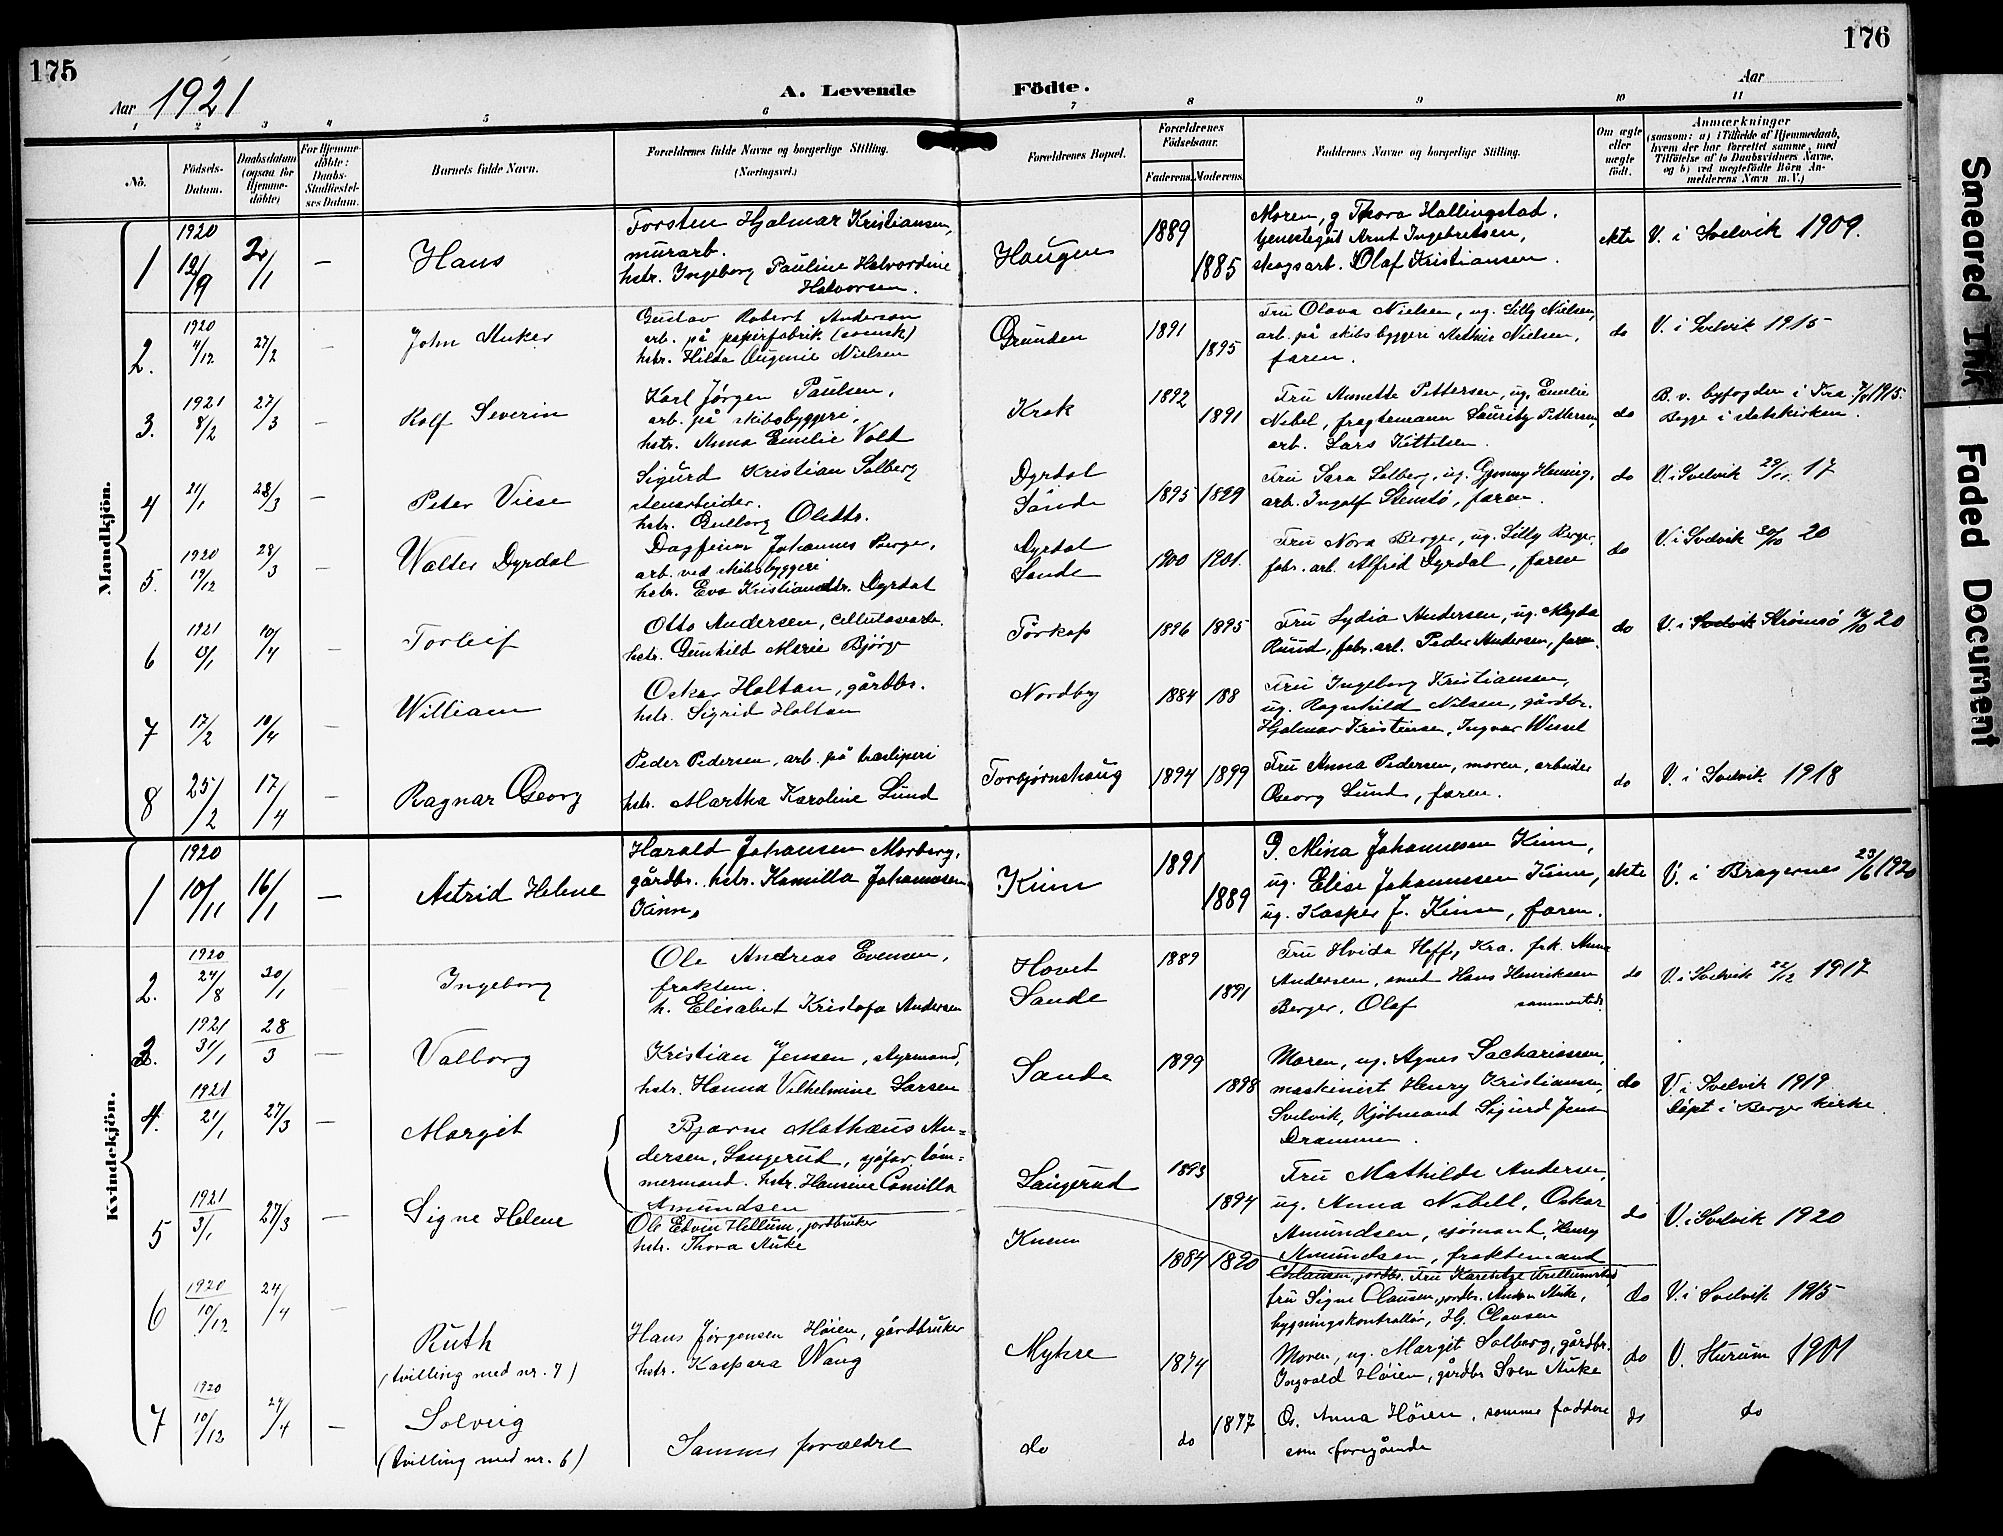 175
176
Aar 1921
A. Levende
Födte.
Aar
1 2 3 4 5 6 7 8 9 10 11
No.
Födsels-
Datum.
Daabsdatum
(ogsaa for
Hjemme-
döbte)
For Hjemme-
döbte:
Daabs-
Stadfæstel-
ses Datum.
Barnets fulde Navn.
Forældrenes fulde Navne og borgerlige Stilling.
(Næringsvei.)
Forældrenes Bopæl.
Forældrenes
Födselsaar.
Faderens. Moderens.
Faddernes Navne og borgerlige Stilling.
Om ægte
eller
uægte
födt.
Anmærkninger
(saasom: a) i Tilfælde af Hjemmedaab,
hvem der har forrettet samme, med
Tilföielse af to Daabsvidners Navne,
og b) ved uægtefödte Börn An-
melderens Navn m. V.)
Mandkjön.
1
1920
12/9
2/1
—
Hans
Torsten Hjalmar Kristiansen,
murarb.
hstr. Ingeborg Pauline Halvordine
Halvorsen.
Haugen
1889
1885
Moren, g Thora Hallingstad,
Arnt Ingebretsen,
skogsarb. Olaf Kristiansen.
ekte
V. i Svelvik 1909.
2.
1920
4/12
27/2
—
John Anker
Gustav Robert Anderson
arb. på papirfabrik (svensk)
hstr. Hilda Eugenie Nielsen
Grunden
1891
1895
Fru Olava Nielsen, ug. Lilly Nielsen,
arb. på skibsbyggeri Arthur Nielsen,
faren.
do
V. i Svelvik 1915
3.
1921
8/2
27/3
—
Rolf Severin
Karl Jørgen Paulsen,
arb. på skibsbyggeri
hstr. Anna Emilie Vold
Krok
1892
1891
Fru Annette Pettersen, ug. Emilie
Nebel, fragtemann Lauritz Pettersen,
arb. Lars Kittelsen.
do
B. v. byfogden i Kra 1915.
Begge i statskirken.
4
21/1
28/3
—
Peter Viese
Sigurd Kristian Solberg
stenarbeider.
hstr. Gulborg Olettr.
Dyrdal
Sande
1895 1899
Fru Sara Solberg, ug. Gjenny Henning,
arb. Ingolf Stemtø, faren.
do
V. i Svelvik 29/11 17
5.
1920
19/12
28/3
—
Walter Dyrdal
Dagfinn Johannes Berger,
arb. ved skibsbyggeri
hstr. Eva Kristiansdtr. Dyrdal
Dyrdal
Sande
1900 1901.
Fru Nora Berger, ug. Lilly Berger,
fabr. arb. Alfred Dyrdal, faren
do
V. i Svelvik 30/10 20
6
1921
13/1
10/4
—
Torleif
Otto Andersen, cellulosearb.
hstr. Gunhild Marie Bjørge
Torkop
1896 1895
Fru Lydia Andersen, ug. Magda
Ruud, fabr. arb. Peder Andersen, faren.
do
V. i Svelvik Strømsø 16/10 20
7
17/2
10/4
—
William
Oskar Holtan, gårdbr.
hstr. Sigrid Holtan
Nordby
1884 188
Fru Ingeborg Kristiansen,
ug. Ragnhild Nilsen, gårdbr.
Hjalmar Kristensen, Ingvar Wessel
8
25/2
17/4
—
Ragnar Georg
Peder Pedersen, arb. på træsliperi
hstr. Martha Karoline Lund
Torbjørnskaug
1894 1899
Fru Anna Pedersen, moren, arbeider
Georg Lund, faren.
do
V. i Svelvik 1918
Kvindekjön.
1
1920
10/11
16/1
—
Astrid Helene
Harald Johansen Morberg,
gårdbr. hstr. Kamilla Johannesen
Kinn.
Kinn
1891
1889
P. Mina Johannesen Kinn,
ug. Elise Johannesen Kinn,
ug. Kasper J. Kinn, faren.
ekte
V. i Bragernes 23/6 1920
2.
1920
24/8
30/1
Ingeborg
Ole Andreas Evensen,
fraktem.
h. Elisabet Kristofa Andersen
Hovet
Sande
1889
1891
Fru Hvida Hoff, Kra. frk. Anna
Andersen, smed Hans Henriksen
Berger, Olaf sammesteds.
do
V. i Svelvik 22/12 1917
3.
1921
31/1
28/3
—
Valborg
Kristian Jensen, styrmand,
hstr. Hanna Vilhelmine Larsen
Sande
1899
1898
Moren, ug. Agnes Sachariassen,
maskinist Henry Kristiansen,
Svelvik, Kjøbmand Sigurd Jensen
Drammen.
do
V. i Svelvik 1919.
Døpt i Berger kirke.
4.
1921
21/1
27/3
—
Margit
Bjarne Mathæus An=
dersen, Laugerud, sjøfar. tøm=
mermand. hstr. Hansine Camilla
Amundsen
Laugerud
1893
1894
Fru Mathilde Andersen,
ug. Anna Nebell, Oskar
Amundsen, sjømand, Henry
Amundsen, fraktemand
do
V. i Svelvik 1920
5
1921
3/1
27/3
—
Signe Helene
Ole Edvin Hellum, jordbruker
hstr. Thora Auke
Knem
1884 1890
Clausen, jordbr. Fru
fru Signe Clausen, jordbr. Anton Auke,
bygningskontrollør, Hj. Clausen
do
V. i Svelvik 1915
6
1920
10/12
24/4
—
Ruth
(tvilling med nr. 7)
Hans Jørgensen Høien, gårdbruker
hstr. Kaspara Wang
Myhre
1874
1877
Moren, ug. Margit Solberg, gårdbr.
Ingvald Høien, gårdbr Sven Auke
do
V. Hurum 1901
7
1920
10/12
24/4
—
Solveig
(tvilling med nr. 6)
Samme forældre
do
do
G. Anna Høien, samme faddere
som foregående
do
do
Smeared Ink
Faded Document